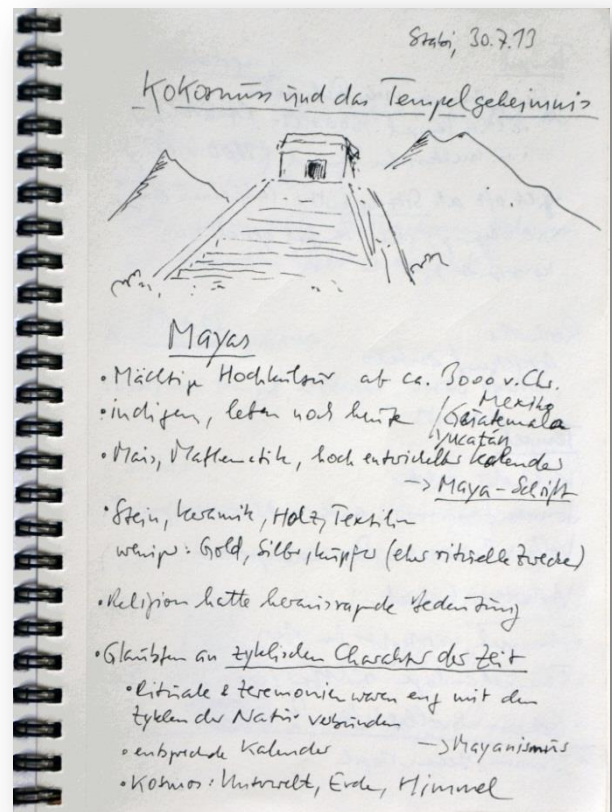 Stabi, 30.7.13
Kokosnuss und das Tempelgeheimnis
Mayas
• Mächtige Hochkultur ab ca. 3000 v. Chr.
• indigen, leben noch heute / Mexiko
Guatemala
Yucatán
• Mais, Mathematik, hoch entwickelter Kalender
-> Maya-Schrift
• Stein, Keramik, Holz, Textilien
weniger: Gold, Silber, Kupfer (eher rituelle Zwecke)
• Religion hatte herausragende Bedeutung
• Glaubten an zyklischen Charakter der Zeit
• Rituale & Zeremonien waren eng mit den
Zyklen der Natur verbunden
• entsprechende Kalender -> Mayanismus
• Kosmos: Unterwelt, Erde, Himmel